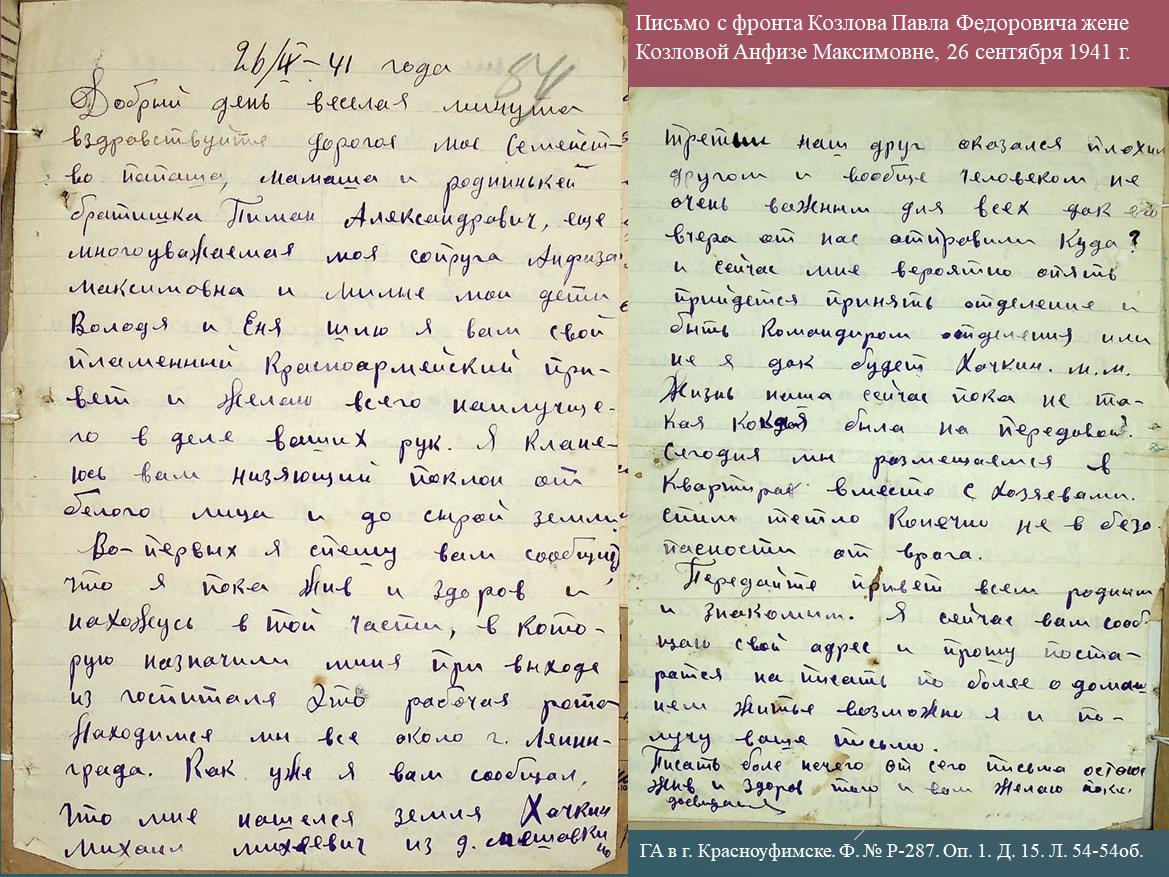 26/IX – 41 года
84
Добрый день веселая минута
вздравствуйте дорогое мое семейст-
во папаша, мамаша и родинькей
братишка Пиман Александрович, еще
многоуважаемая моя сопруга Анфиза
Максимовна и милые мои дети
Володя и Еня шлю я вам свой
пламенный Красноармейский при-
вет и желаю всего наилучше-
го в деле ваших рук. Я клане-
юсь вам низяющий поклон от
белого лица и до сырой земли.
Во-первых я спешу вам сообщить
что я пока жив и здоров и
нахожусь в той части, в кото-
рую назначили миня при выходе
из госпиталя Это рабочая рота
Находимся мы все около г. Ленин-
града. Как уже я вам сообщал,
что мне нашелся земля Хачкин
Михаил михеевич из д.
Письмо с фронта Козлова Павла Федоровича жене
Козловой Анфизе Максимовне, 26 сентября 1941 г.
третий наш друг оказался плохим
другом и вообще человеком не
очень важным для всех дак его
вчера от нас отправили Куда?
и сейчас мне вероятно опять
прийдется принять отделение и
быть Командиром отделения или
не я дак будет Хачкин. м.м.
Жизнь наша сейчас пока не та-
кая была на передовой.
Сегодня мы размещаемся в
Квартирах вместе с хозяевами.
спим тепло Конечно не в безо-
пасности от врага.
Передайте привет всем родным
и знакомым. Я сейчас вам сооб-
щаю свой адрес и прошу поста-
ратся написать по более о домаш
нем житье возможно я и по-
лучу ваше письмо.
Писать боле нечего от сего письма остаюс
жив и здоров того и вам желаю пока
досвидания
ГА в г. Красноуфимске. Ф. № Р-287. Оп. 1. Д. 15. Л. 54-54об.